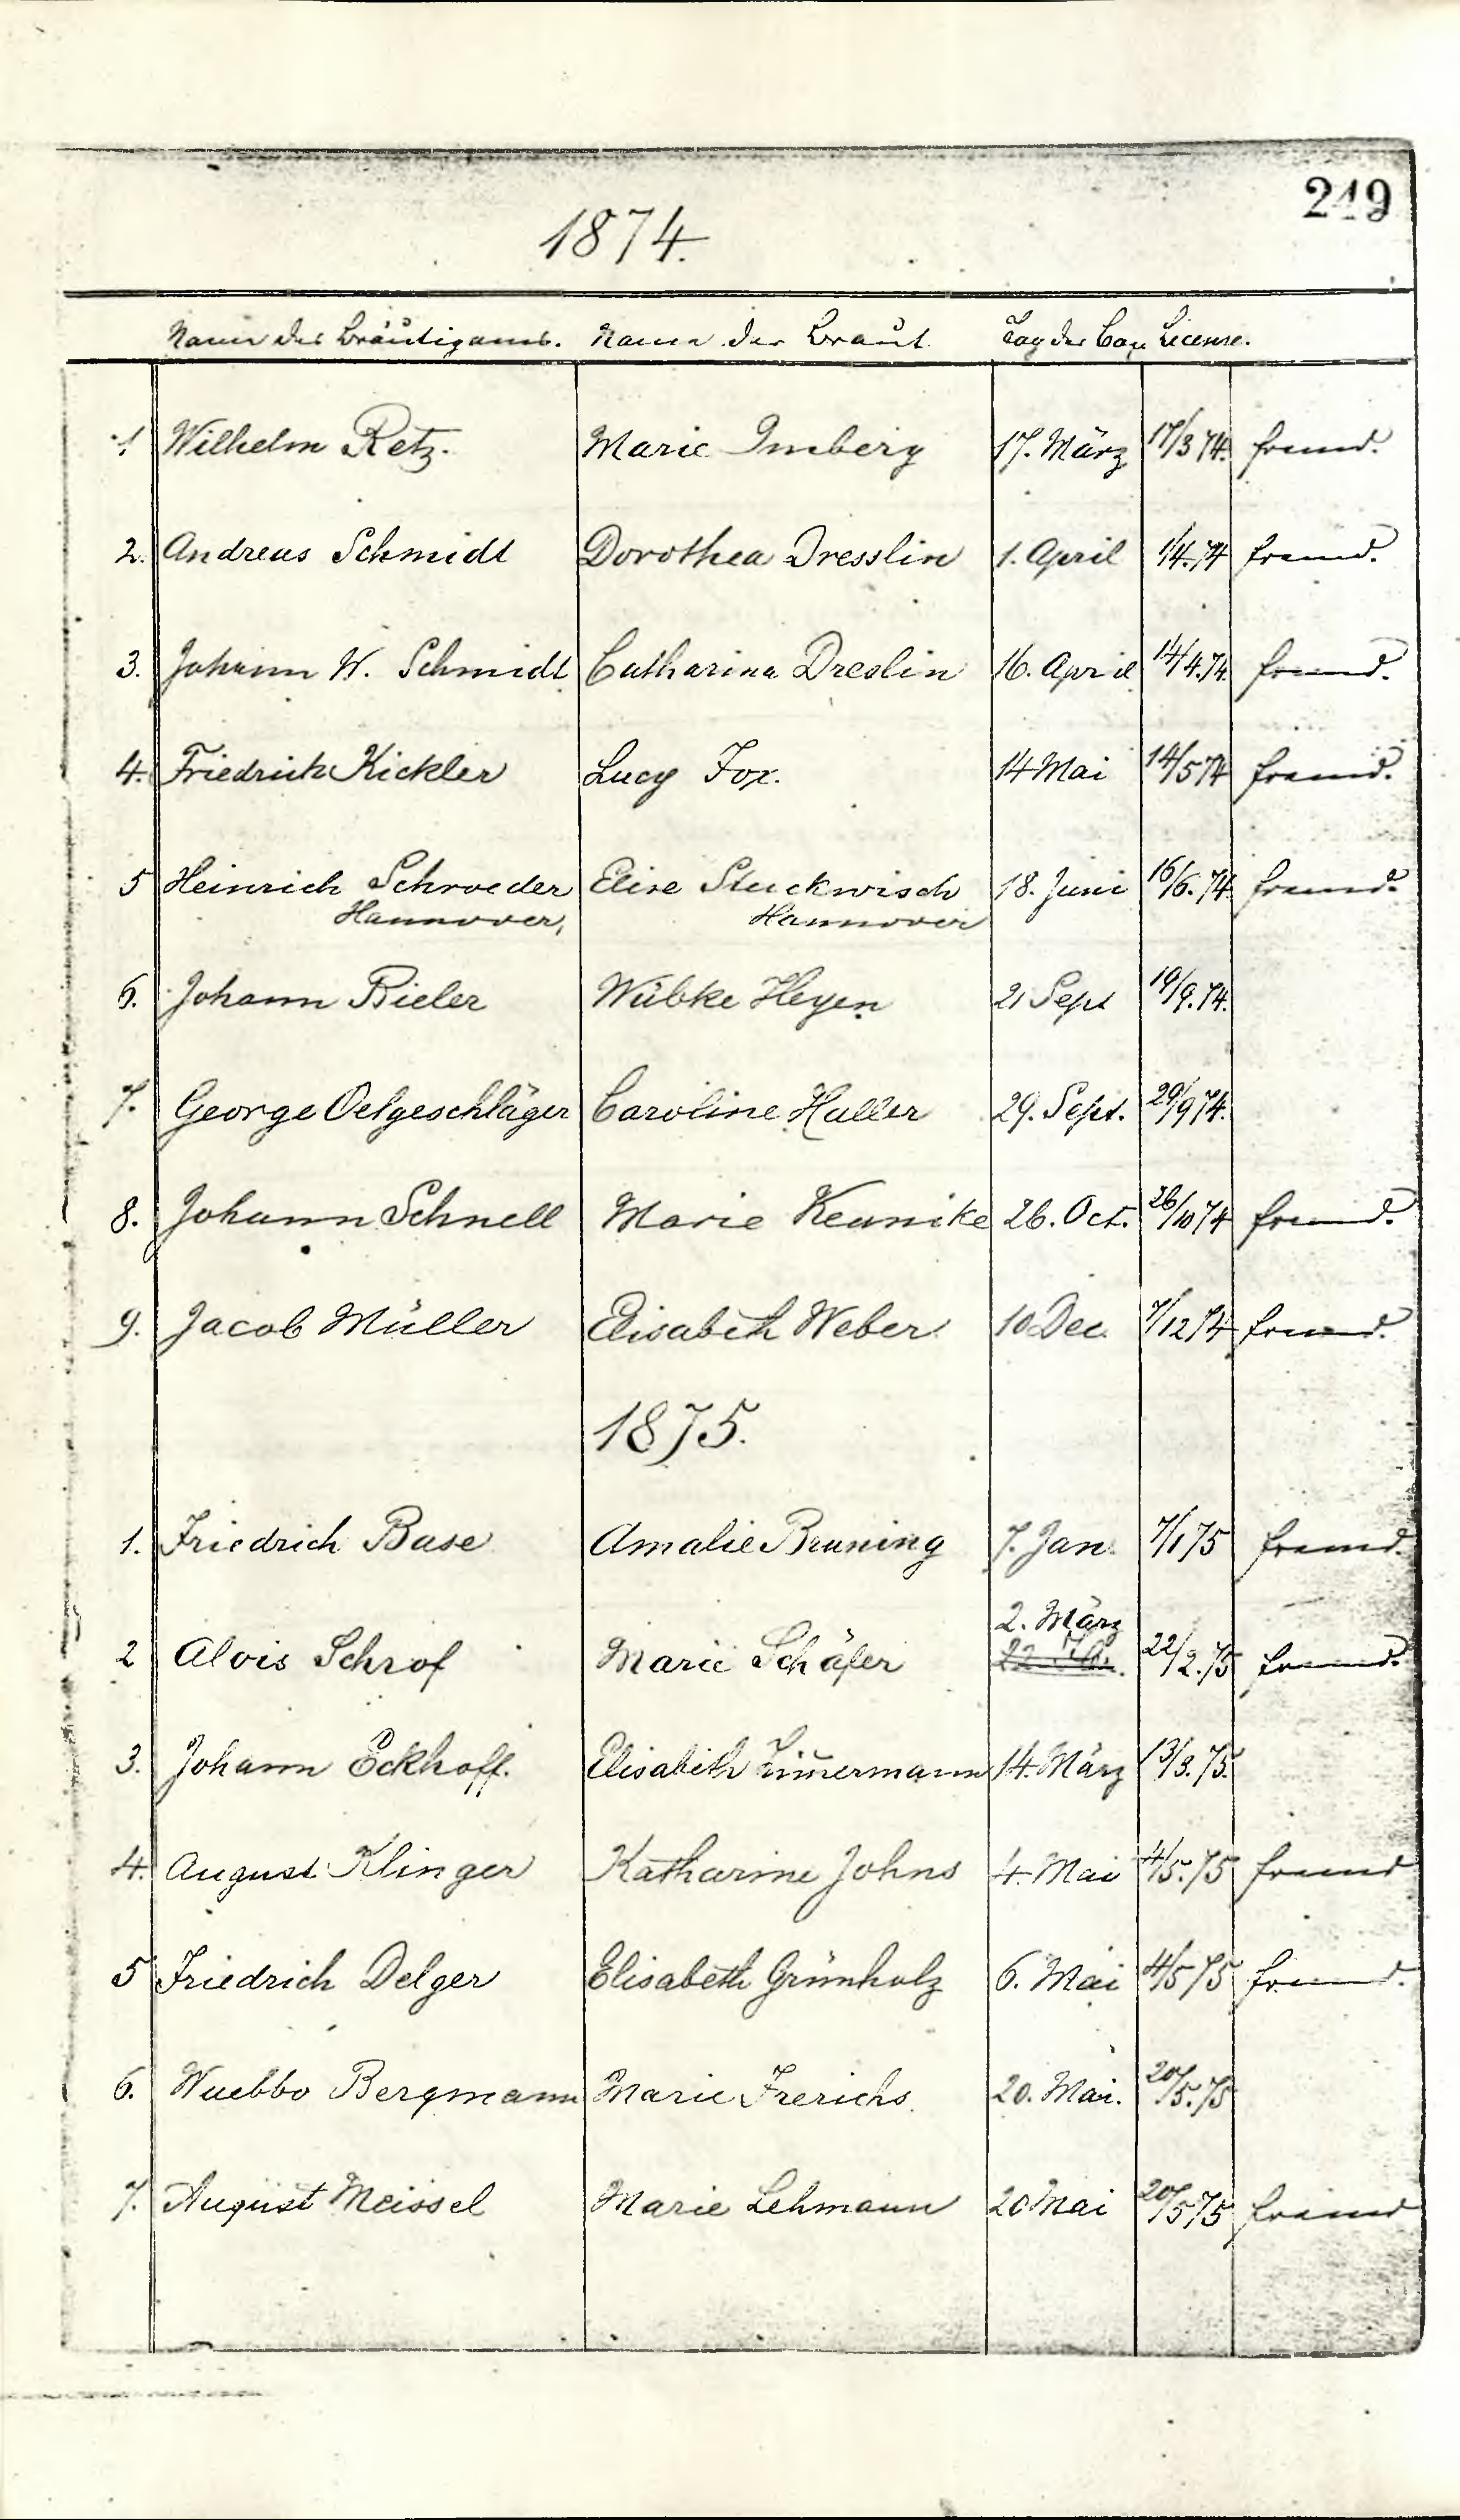 249
1874.
Name des Bräutigams. Name der Braut. Tag der Cop. License.
1. Wilhelm Retz. Marie Imberg 17. März 17/3 74. fremd.
2. Andreas Schmidt Dorothea Dresslin 1. April 1/4.74 fremd.
3. Johann W. Schmidt Catharina Dreslin 16. April 14/4.74. fremd.
4. Friedrich Kickler Lucy Fox. 14 Mai 14/5 74 fremd.
5 Heinrich Schroeder Elise Stuckwisch 18. Juni 16/6.74. fremd.
Hannover, Hannover
6. Johann Rieler Wübke Heyen 21 Sept 19/9.74.
7. George Oelgeschläger Caroline Haller 29. Sept. 29/9 74.
8. Johann Schnell Marie Keunike 26. Oct. 26/10 74 fremd.
9. Jacob Müller Elisabeth Weber 10 Dec. 7/12 74 fremd.
1875.
1. Friedrich Base Amalie Bruning 7. Jan. 7/1 75 fremd.
2. März
2 Alois Schrof Marie Schäfer 22/2.75 fremd.
3. Johann Eckhoff. Elisabeth Zim̄ermann 14. März 13/3.75.
4. August Klinger Katharine Johns 4. Mai 4/5.75 fremd
5 Friedrich Delger Elisabeth Grünholz 6. Mai 4/5 75 fremd.
6. Wuebbo Bergmann Marie Frerichs. 20. Mai. 20/5.75
7. August Meissel Marie Lehmann 20 Mai 20/5 75 fremd